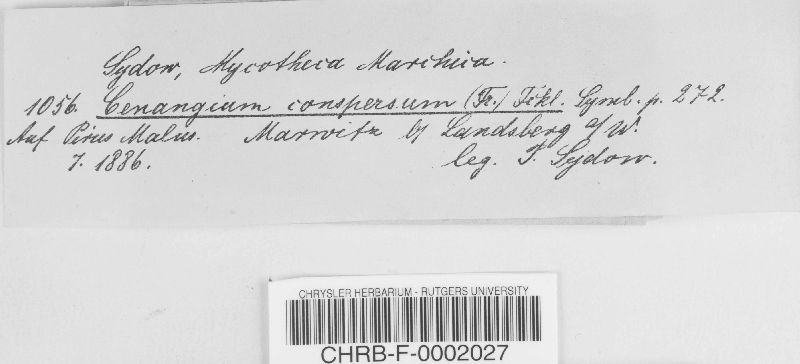 Sydow, Mycotheca Marchica.
1056. Cenangium conspersum (Fr.) Fckl. Symb. p. 272.
Auf Pirus Malus. Marwitz b/ Landsberg a/W.
7. 1886. leg. P. Sydow.
CHRYSLER HERBARIUM - RUTGERS UNIVERSITY
CHRB-F-0002027